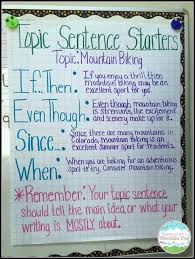 Topic Sentence Starters
Topic: Mountain Biking
If...Then: If you enjoy a thrill, then
mountain biking may be an
excellent sport for you!
Even Though: Even though mountain biking
is strenuous the excitement
and scenery make up for it.
Since: Since there are many mountains in
Colorado, mountain biking is an
excellent summer sport for residents.
When: When you are looking for an adventurous
sport to try, consider mountain biking.
*Remember: Your topic sentence
should tell the main idea, or what your
writing is MOSTLY about.